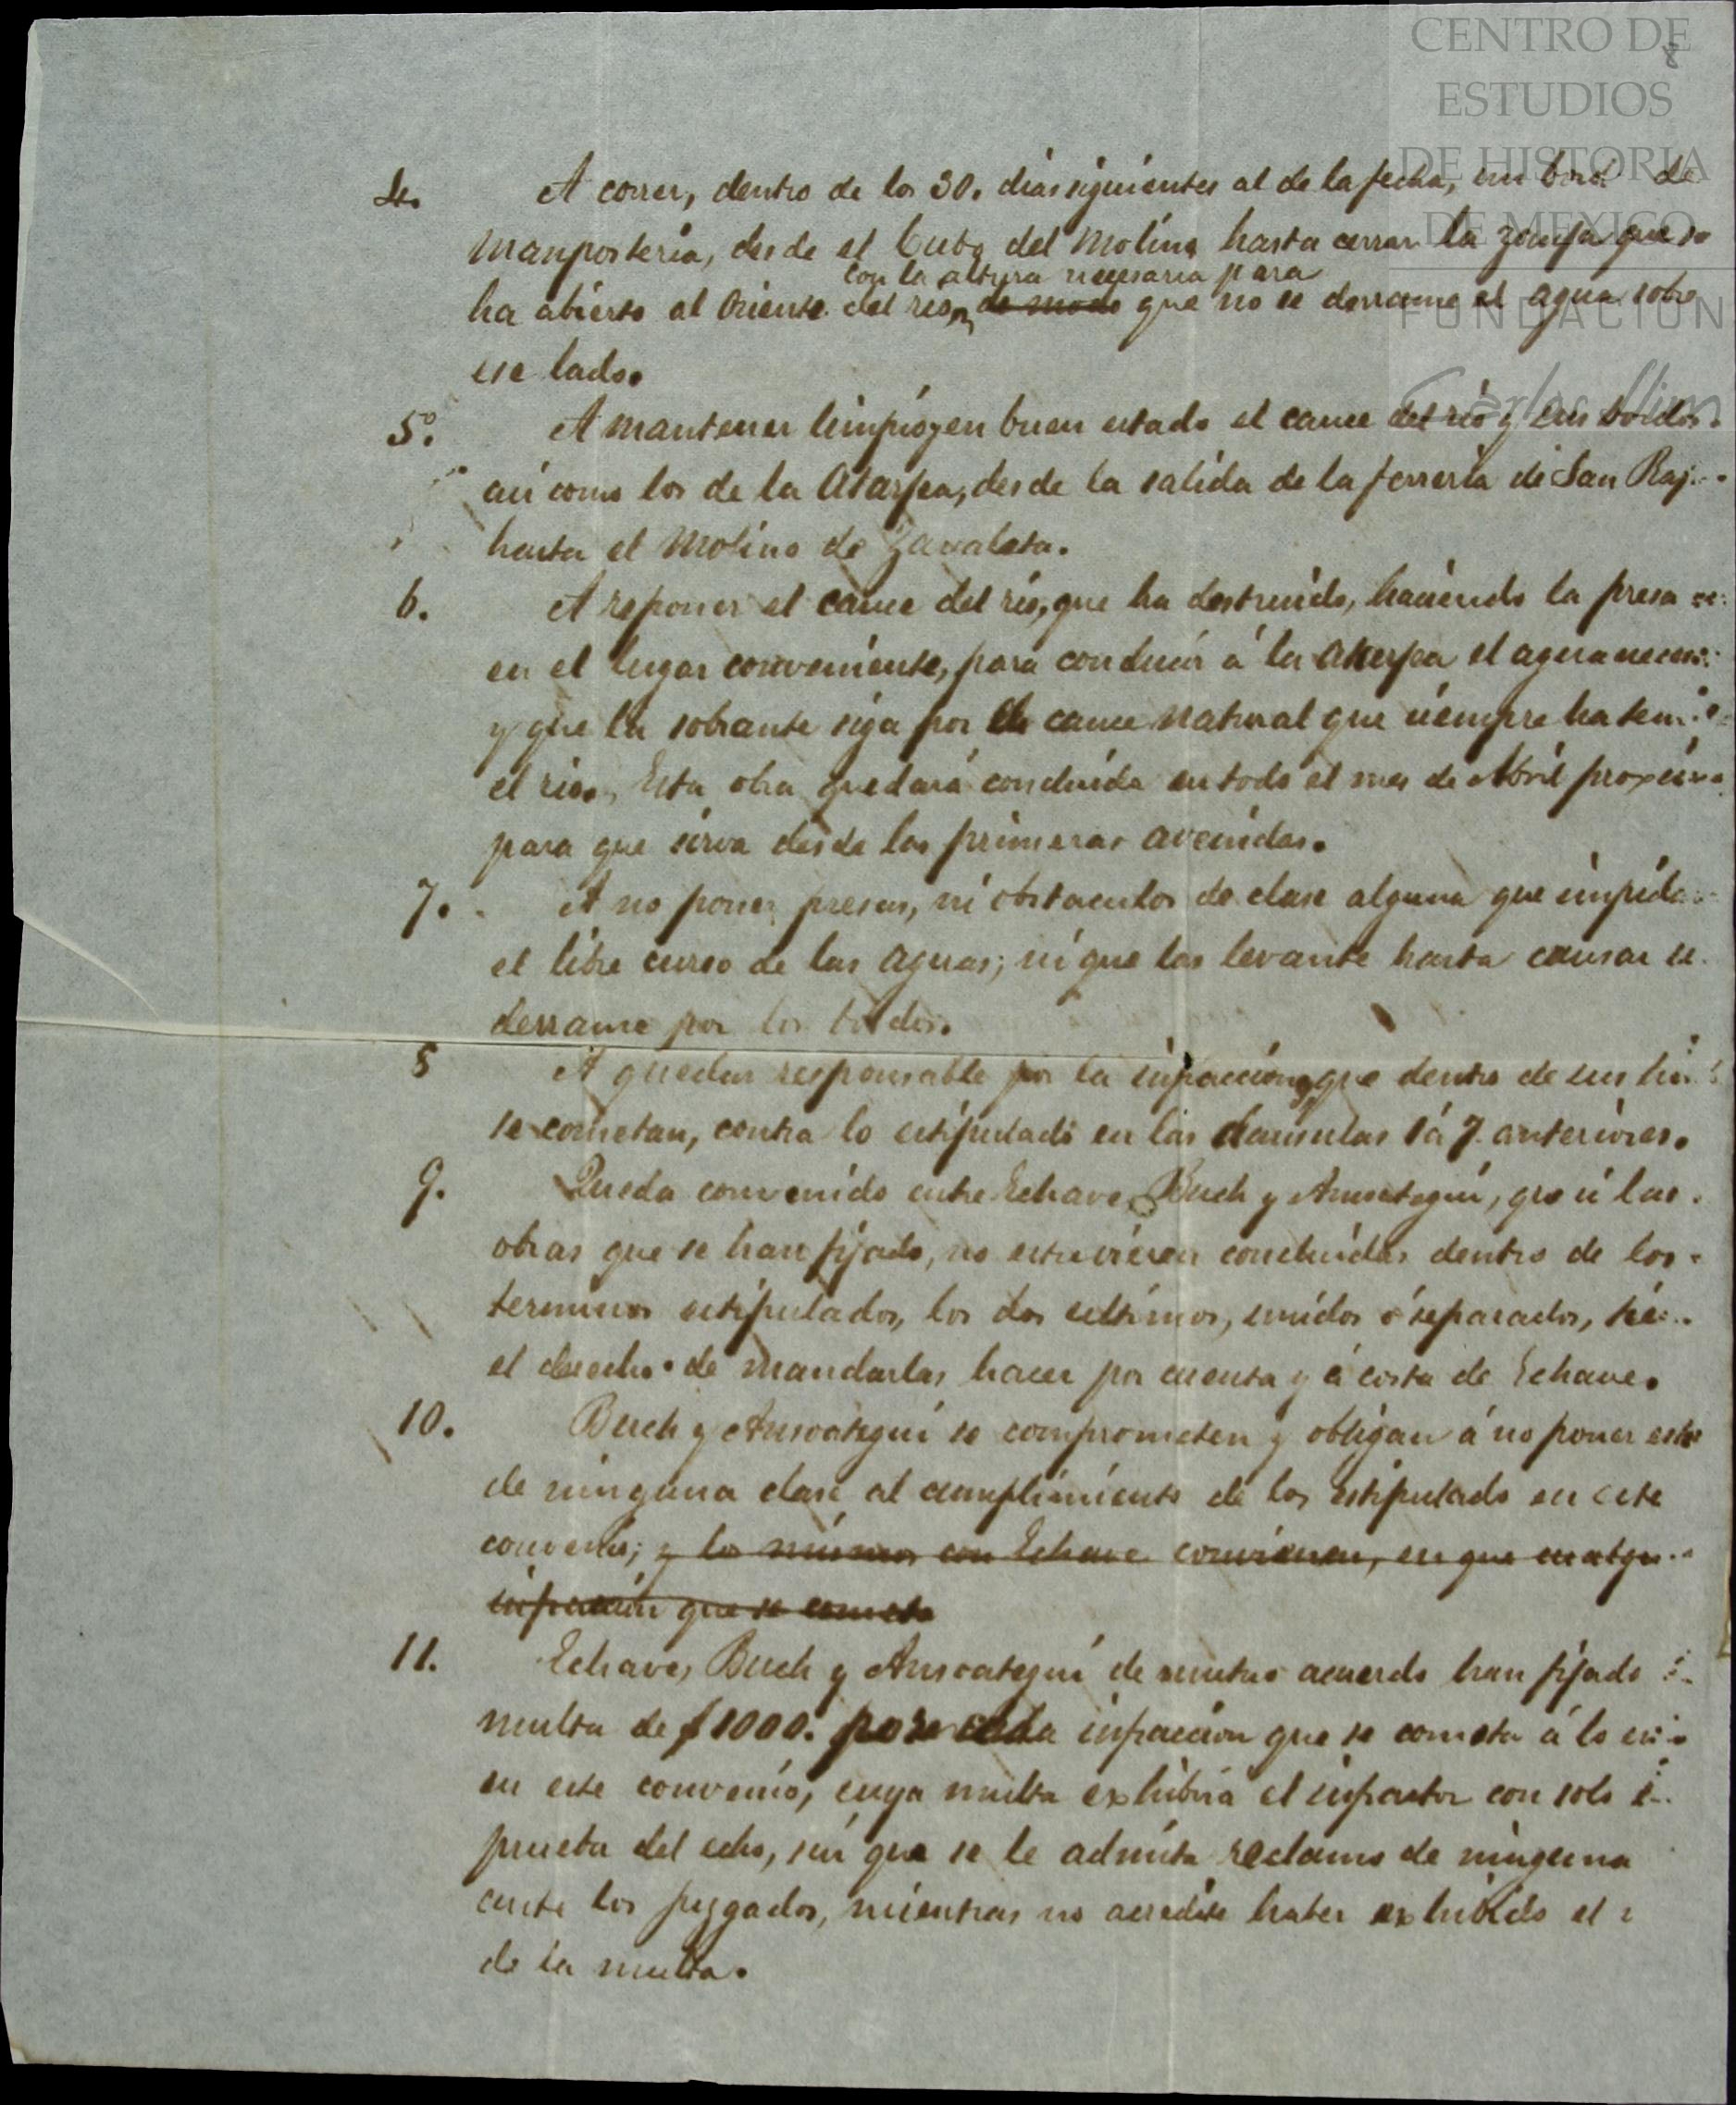 CENTRO DE
ESTUDIOS
DE HISTORIA
DE MEXICO
FUNDACION
Carlos Slim
8
4. A correr, dentro de los 30. dias siguientes al de la fecha, un bordo de
manposteria, desde el Cubo del Molino hasta cerrar la zanja que se
con la altura necesaria para
ha abierto al Oriente del rio, de modo que no se derrame el agua sobre
ese lado.
5º. A mantener limpio y en buen estado el cauce del rio y sus bordos.
asi como los de la Atarjea, desde la salida de la ferreria de San Raf
hasta el Molino de Zavaleta.
6. A reponer el cauce del rio, que ha destruido, haciendo la presa
en el lugar conveniente, para conducir á la Atarjea el agua neces
y que la sobrante siga por el cauce natural que siempre ha teni
el rio. Esta obra quedará concluida en todo el mes de Abril proximo
para que sirva desde las primeras avenidas.
7. A no poner presas, ni obstaculos de clase alguna que impida
el libre curso de las aguas; ni que las levante hasta causar su
derrame por los bordos.
8 A quedar responsable por la infaccion que dentro de sus
se cometan, contra lo estipulado en las clausulas 1 á 7. anteriores.
9. Queda convenido entre Echave, Buch y Ansoategui, que si las
obras que se han fijado, no estuvieren concluidas dentro de los
terminos estipulados, los dos ultimos, unidos ó separados,
el derecho de mandarlas hacer por cuenta y á costa de Echave.
10. Buch y Ansoategui se comprometen y obligan á no poner
de ninguna clase al cumplimiento de los estipulado en este
convenio; y los mismos con Echave convienen, en que cualqu
infracción que se cometa
11. Echave, Buch y Ansoategui de mutuo acuerdo han fijado
multa de $1000. por cada infraccion que se cometa á lo
en este convenio, cuya multa exhibirá el infractor con solo
prueba del echo, sin que se le admita reclamo de ninguna
ante los juzgados, mientras no acredite haber exhibido el
de la multa.